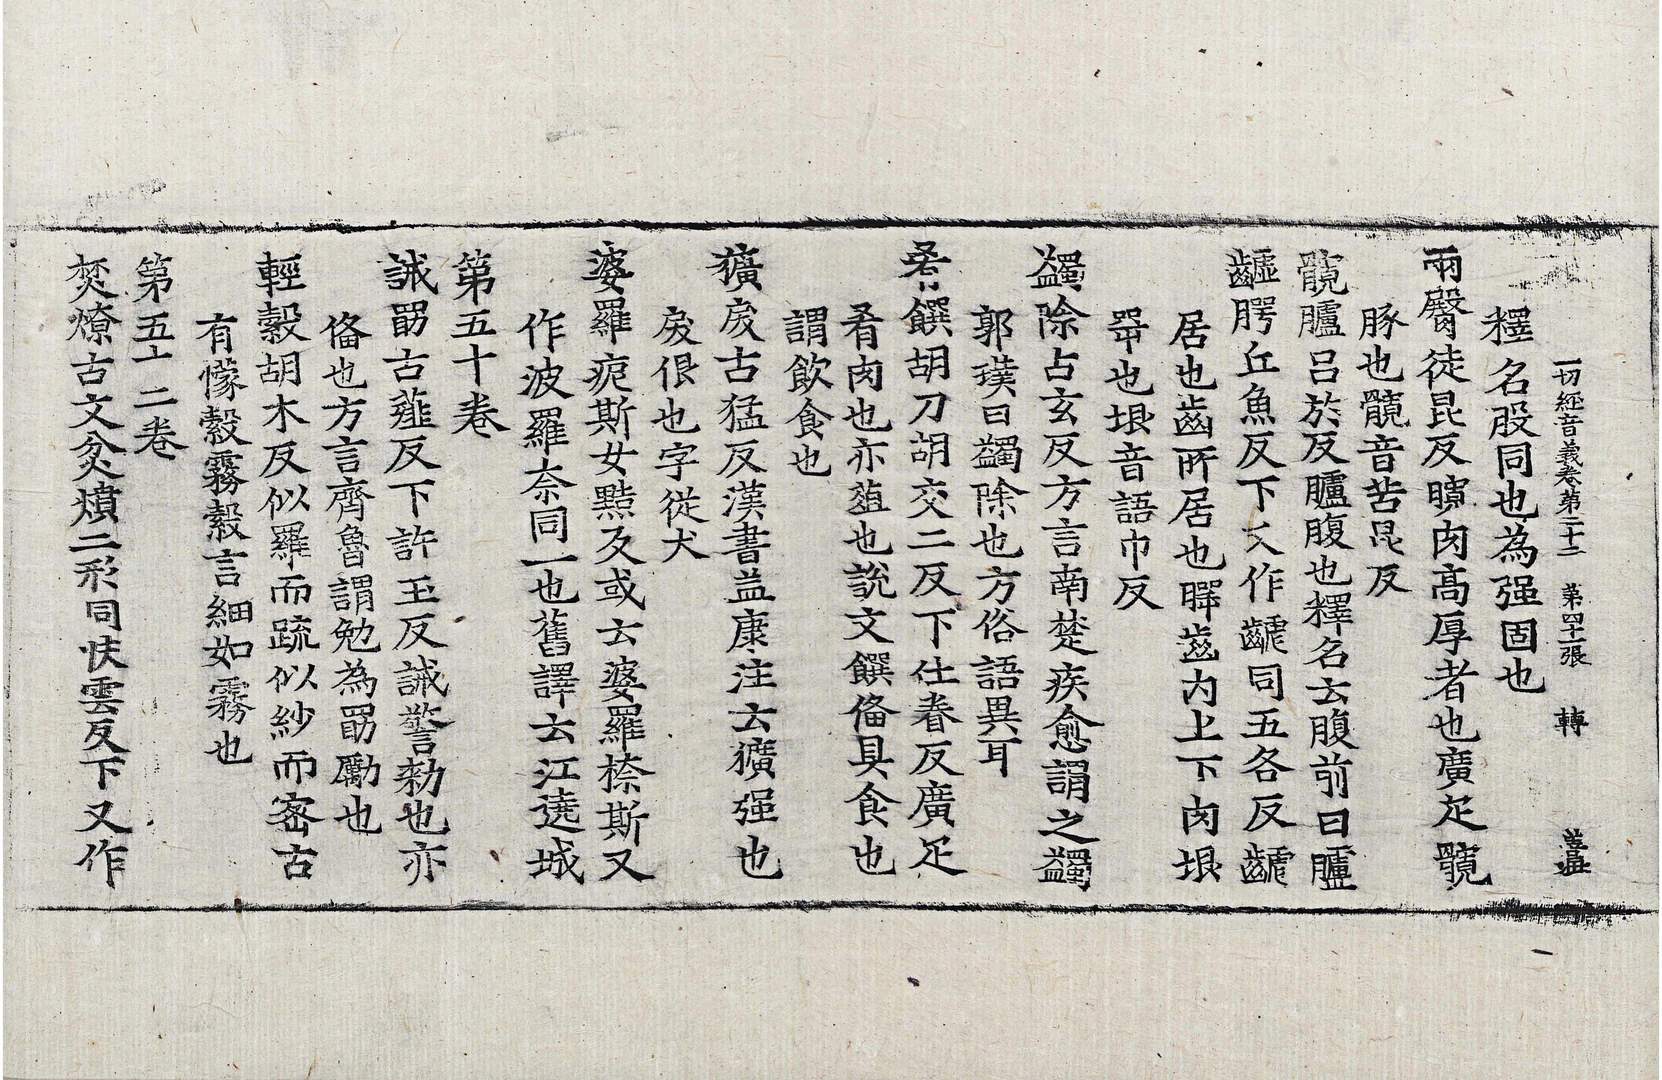 一切經音義卷第二十二 第四十張 轉
釋名股同也為强固也
兩臀徒昆反𦞠肉高厚者也廣疋髖
豚也髖音苦昆反
髖臚呂於反臚腹也釋名云腹前曰臚
齷腭丘魚反下又作齶同五各反齶
居也齒所居也腭齒內上下肉垠
咢也垠音語巾反
蠲除古玄反方言南楚疾愈謂之蠲
郭璞曰蠲除也方俗語異耳
肴饌胡刀胡交二反下仕眷反廣疋
肴肉也亦葅也說文饌俻具食也
謂飲食也
獷戾古猛反漢書益康注云獷强也
戾佷也字從犬
婆羅痆斯女黠反或云婆羅㮈斯又
作波羅奈同一也舊譯云江遶城
第五十卷
誡勗古薤反下許玉反誡警勑也亦
俻也方言齊魯謂勉為勗勵也
輕縠胡木反似羅而踈似紗而密古
有㡆縠霧縠言細如霧也
第五十二卷
焚燎古文炃燌二形同扶雲反下又作